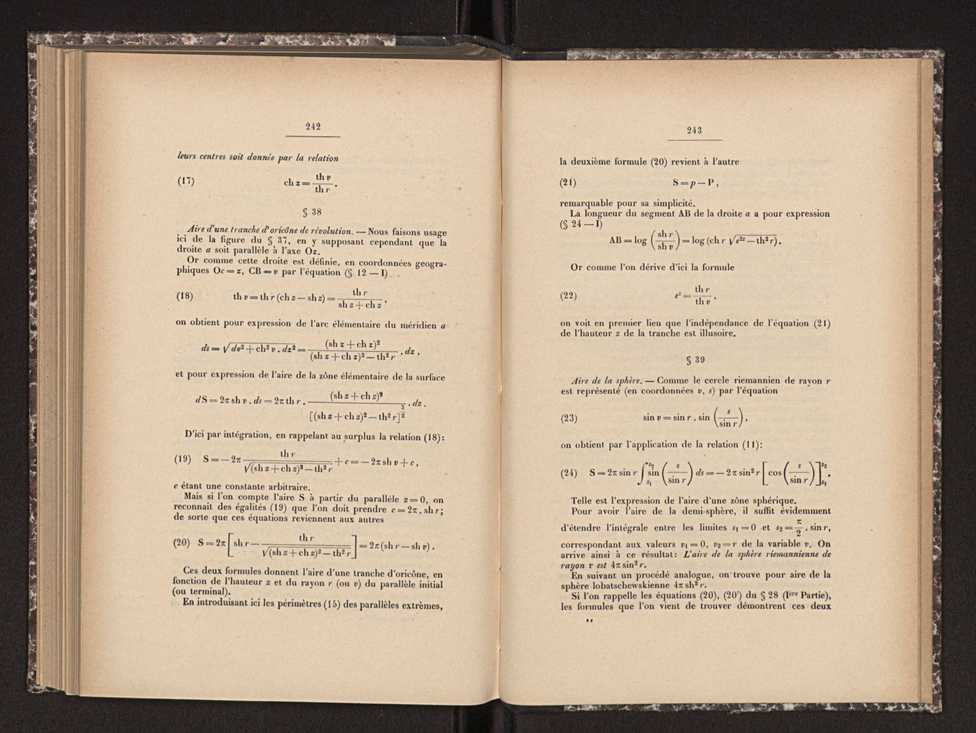 242
leurs centres soit donnée par la relation
(17) ch z = th v / th r .
§ 38
Aire d'une tranche d'oricône de révolution. — Nous faisons usage
ici de la figure du § 37, en y supposant cependant que la
droite a soit parallèle à l'axe Oz.
Or comme cette droite est définie, en coordonnées geogra-
phiques Oc = z, CB = v par l'équation (§ 12 — I)
(18) th v = th r (ch z — sh z) = th r / (sh z + ch z) ,
on obtient pour expression de l'arc élémentaire du méridien a
ds = √(dv² + ch² v . dz²) = (sh z + ch z)² / ((sh z + ch z)² — th² r) . dz ,
et pour expression de l'aire de la zône élémentaire de la surface
dS = 2π sh v . ds = 2π th r . (sh z + ch z)² / [(sh z + ch z)² — th² r]^(3/2) . dz .
D'ici par intégration, en rappelant au surplus la relation (18):
(19) S = — 2π th r / √((sh z + ch z)² — th² r) + c = — 2π sh v + c ,
c étant une constante arbitraire.
Mais si l'on compte l'aire S à partir du parallèle z = 0, on
reconnait des égalités (19) que l'on doit prendre c = 2π . sh r;
de sorte que ces équations reviennent aux autres
(20) S = 2π [sh r — th r / √((sh z + ch z)² — th² r)] = 2π (sh r — sh v) .
Ces deux formules donnent l'aire d'une tranche d'oricône, en
fonction de l'hauteur z et du rayon r (ou v) du parallèle initial
(ou terminal).
En introduisant ici les périmètres (15) des parallèles extrêmes,
243
la deuxième formule (20) revient à l'autre
(21) S = p — P ,
remarquable pour sa simplicité.
La longueur du segment AB de la droite a a pour expression
(§ 24 — I)
AB = log (sh r / sh v) = log (ch r √(e²ᶻ — th² r) .
Or comme l'on dérive d'ici la formule
(22) eᶻ = th r / th v ,
on voit en premier lieu que l'indépendance de l'équation (21)
de l'hauteur z de la tranche est illusoire.
§ 39
Aire de la sphère. — Comme le cercle riemannien de rayon r
est représenté (en coordonnées v, s) par l'équation
(23) sin v = sin r . sin (s / sin r) ,
on obtient par l'application de la relation (11):
(24) S = 2π sin r ∫_{s₁}^{s₂} sin (s / sin r) ds = — 2 π sin² r [cos (s / sin r)]_{s₁}^{s₂} .
Telle est l'expression de l'aire d'une zône sphérique.
Pour avoir l'aire de la demi-sphère, il suffit évidemment
d'étendre l'intégrale entre les limites s₁ = 0 et s₂ = π/2 . sin r,
correspondant aux valeurs v₁ = 0, v₂ = r de la variable v. On
arrive ainsi à ce résultat: L'aire de la sphère riemannienne de
rayon r est 4π sin² r.
En suivant un procédé analogue, on trouve pour aire de la
sphère lobatschewskienne 4π sh² r.
Si l'on rappelle les équations (20), (20') du § 28 (Ière Partie),
les formules que l'on vient de trouver démontrent ces deux